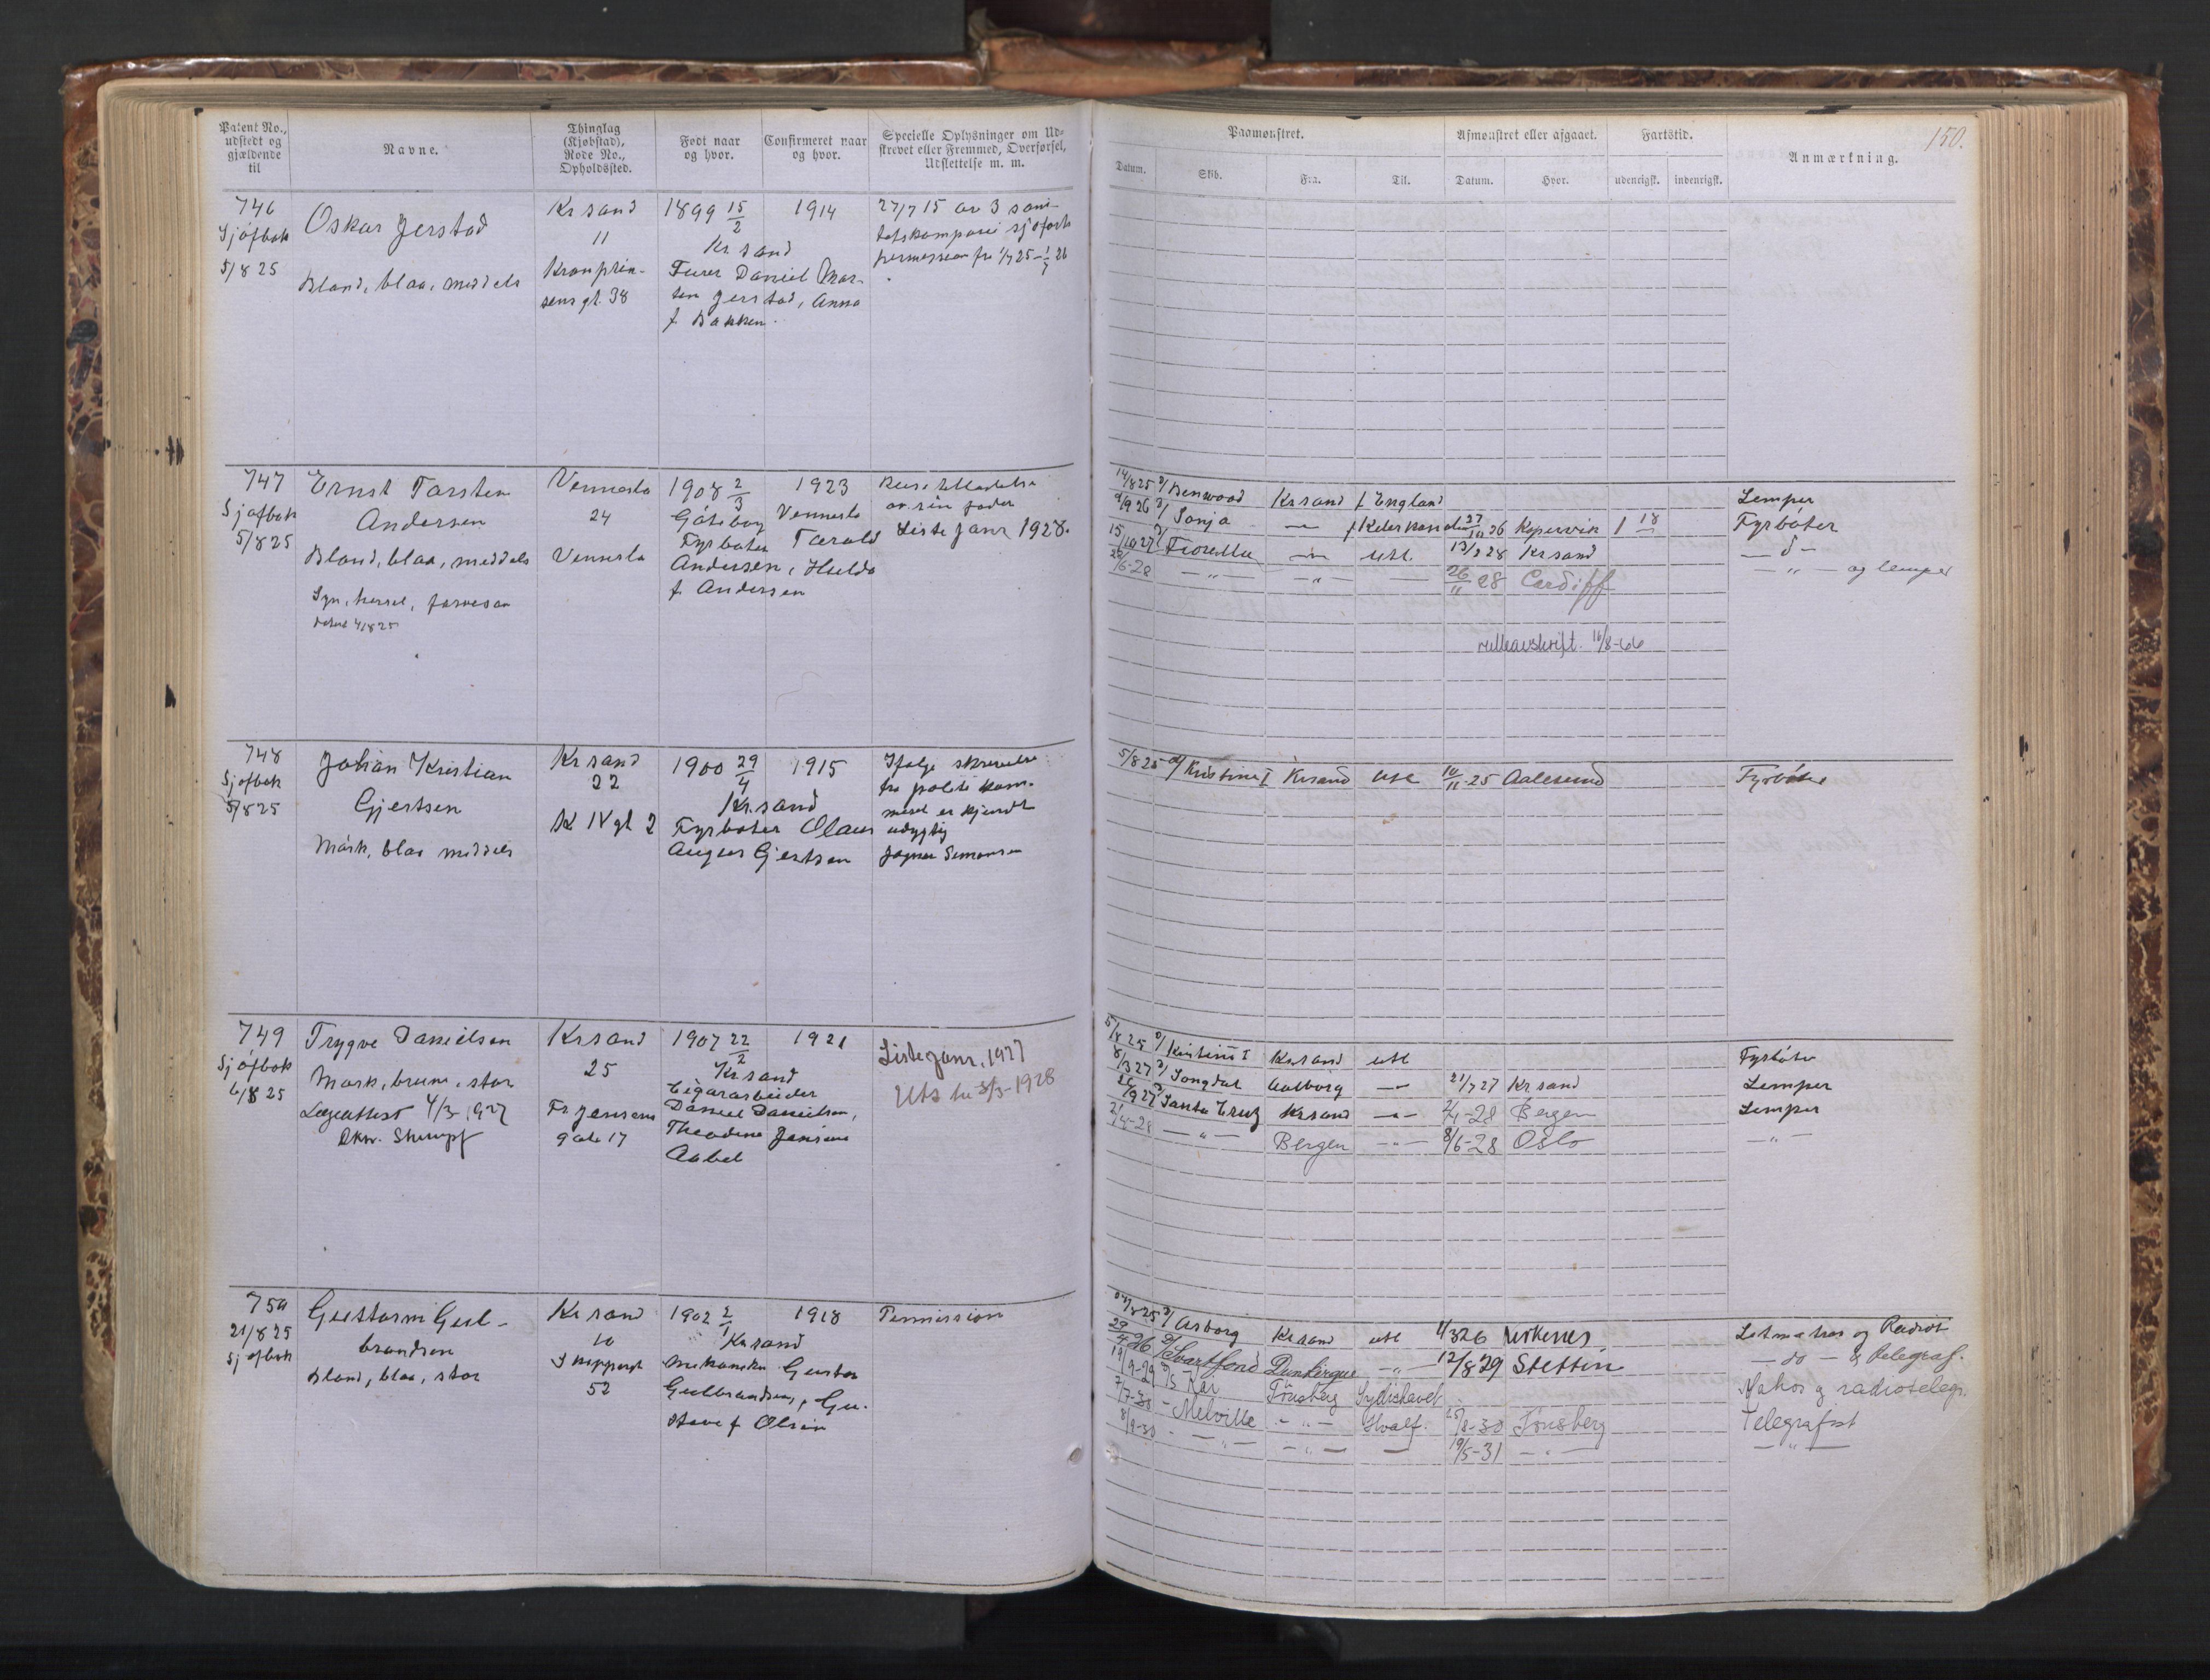 Patent No.,
udstedt og
gjældende
til
Navne.
Thinglag
(Kjøbstad),
Rode No.,
Opholdssted.
Født naar
og hvor.
Confirmeret naar
og hvor.
Specielle Oplysninger om Ud-
skrevet eller Fremmed, Overførsel,
Udslettelse m. m.
Paamønstret.
Afmønstret eller afgaaet.
Fartstid.
Anmærkning.
150.
Datum.
Skib.
Fra.
Til.
Datum.
Hvor.
udenrigsk.
indenrigsk.
746
Sjøfbok
5/8 25
Oskar Jerstad
Blond, blaa, middels
Kr sand
11
Kronprin-
sens gt. 38
1899 15/2
Kr sand
Furer Daniel Mar-
ten Jerstad, Anna
f. Bakken.
1914
27/7 15 av 3 sani-
tetskompani sjøfarts
permission fra 1/7 25 - 1/7 26
747
Sjøfbok
5/8 25
Ernst Torsten
Andersen
Blond, blaa, middels
Syn, hørsel, farvesan
4/8 25
Vennesla
24
Vennesla
1908 2/3
Gøteborg
Fyrbøter Tarald
Andersen, Hulda
f. Andersen
1923
Vennesla
av sin fader
Liste Janr 1928.
14/8 25 D/ Benwood Krsand f. England Lemper
9/9 26 D/ Sonja -"- 27/10 26 Kopervik 1 18 Fyrbøter
15/10 27 D/ Fiorella -"- utl. 13/2 28 Krsand - d -
22/6-28 -"- -"- 26/11 28 Cardiff -"- og lemper
rulleavskrift. 16/8-66
748
Sjøfbok
5/8 25
Johan Kristian
Gjertsen
Mørk, blaa middels
Kr sand
22
K IV gt 2
1900 29/4
Kr. sand
Fyrbøter Olaus
August Gjertsen
1915
Ifølge skrivelse
fra politikam-
meret er kjendt
udygtig
Simonsen
5/8 25 D/ Kristine I Krsand utl 10/11-25 Aalesund Fyrbøter
749
Sjøfbok
6/8 25
Trygve Danielsen
Mørk, brune, stor
Lægeattest 4/3 1927
Dktr. Stumpf
Krsand
25
Fr. Jansens
gate 17
1907 22/2
Kr. sand
Cigararbeider
Daniel Danielsen,
Theodine Jensine
Aabel
1921
Liste Janr. 1927
3/3-1928
5/8 25 D/ Kristine I Krsand utl Fyrbøter
8/3 27 D/ Songdal Aalborg -"- 21/7 27 Kr sand Lemper
26/9 27 D/ Santa Cruz Krsand -"- 2/4-28 Bergen Lemper
21/4-28 -"- Bergen -"- 8/6-28 Oslo -"-
750
21/8 25
Sjøfbok
Guttorm Gul-
brandsen
Blond, blaa, stor
Kr sand
10
Skippergt
52
1902 2/1
Kr sand
Mekaniker Gustav
Gulbrandsen, Gu-
stava f Olsen
1918
Permission
8 25 D/ Aasborg Kr sand utl 1/3 26 Kirkenes Letmatros og Radiot
29/4 26 D/ Svartfond Dunkerque -"- 12/8 29 Stettin - do - & telegraf.
19/9-29 D/S Kar Tønsberg Sydishavet Matros & radiotelegr.
7/7-30 - Melville -"- Hvalf. 25/8-30 Tønsberg Telegrafist
8/9-30 -"- -"- - 19/5-31 -"- -"-